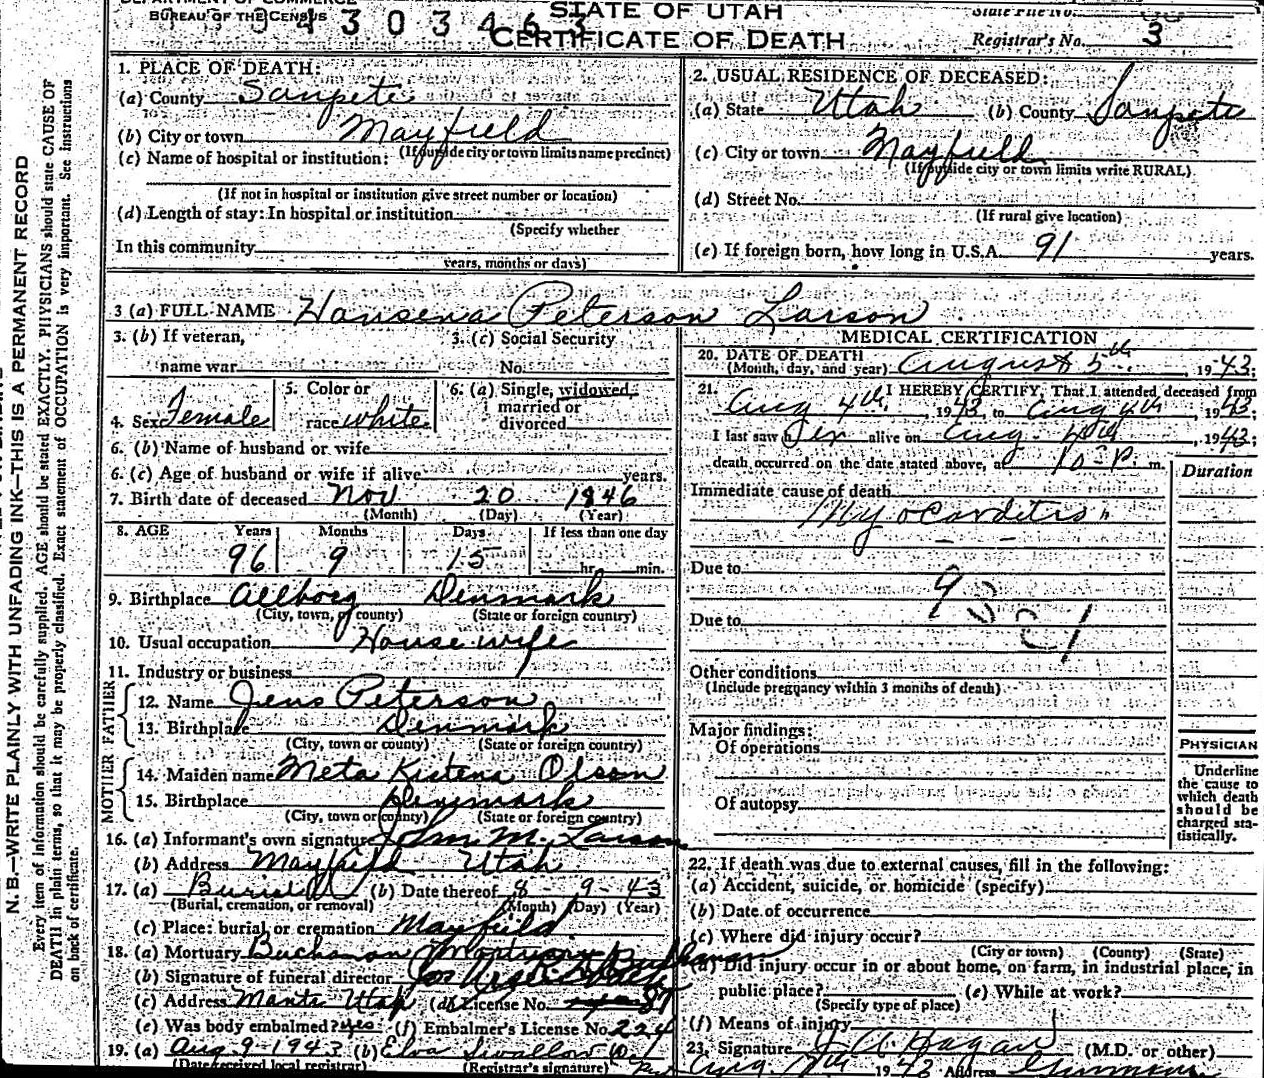 DEPARTMENT OF COMMERCE
BUREAU OF THE CENSUS
4 3 0 3 4 6 3
STATE OF UTAH
CERTIFICATE OF DEATH
State File No.
Registrar's No. 3
N. B.—WRITE PLAINLY WITH UNFADING INK—THIS IS A PERMANENT RECORD
Every item of information should be carefully supplied. AGE should be stated EXACTLY. PHYSICIANS should state CAUSE OF
DEATH in plain terms, so that it may be properly classified. Exact statement of OCCUPATION is very important. See instructions
on back of certificate.
1. PLACE OF DEATH:
(a) County Sanpete
(b) City or town Mayfield
(If outside city or town limits name precinct)
(c) Name of hospital or institution:
(If not in hospital or institution give street number or location)
(d) Length of stay: In hospital or institution
(Specify whether
In this community
years, months or days)
2. USUAL RESIDENCE OF DECEASED:
(a) State Utah (b) County Sanpete
(c) City or town Mayfield
(If outside city or town limits write RURAL)
(d) Street No.
(If rural give location)
(e) If foreign born, how long in U.S.A. 91 years.
3 (a) FULL NAME Hansena Peterson Larson
3. (b) If veteran,
name war
3. (c) Social Security
No.
4. Sex Female
5. Color or
race white
6. (a) Single, widowed,
married or
divorced
6. (b) Name of husband or wife
6. (c) Age of husband or wife if alive years.
7. Birth date of deceased Nov 20 1846
(Month) (Day) (Year)
8. AGE Years Months Days If less than one day
96 9 15 hr. min.
9. Birthplace Allborg Denmark
(City, town, or county) (State or foreign country)
10. Usual occupation House wife
11. Industry or business
FATHER
12. Name Jens Peterson
13. Birthplace Denmark
(City, town or county) (State or foreign country)
MOTHER
14. Maiden name Meta Kistena Olson
15. Birthplace Denmark
(City, town or county) (State or foreign country)
16. (a) Informant's own signature John M. Larson
(b) Address Mayfield Utah
17. (a) Burial (b) Date thereof 8 - 9 - 43
(Burial, cremation, or removal) (Month) (Day) (Year)
(c) Place: burial or cremation Mayfield
18. (a) Mortuary Buchanan Mortuary
(b) Signature of funeral director Buchanan
(c) Address Manti Utah (d) License No. 87
(e) Was body embalmed? yes (f) Embalmer's License No. 224
19. (a) Aug. 9-1943 (b) Elva Swallow
(Date received local registrar) (Registrar's signature)
MEDICAL CERTIFICATION
20. DATE OF DEATH
(Month, day, and year) August 5th, 1943;
21. I HEREBY CERTIFY, That I attended deceased from
Aug 4th, 1943, to Aug 4th 1943;
I last saw her alive on Aug. 4th, 1943;
death occurred on the date stated above, at 10 - P. m.
Duration
Immediate cause of death
Myocardetis
Due to
Due to
Other conditions
(Include pregnancy within 3 months of death)
Major findings:
Of operations
Of autopsy
PHYSICIAN
Underline
the cause to
which death
should be
charged sta-
tistically.
22. If death was due to external causes, fill in the following:
(a) Accident, suicide, or homicide (specify)
(b) Date of occurrence
(c) Where did injury occur?
(City or town) (County) (State)
(d) Did injury occur in or about home, on farm, in industrial place, in
public place? (e) While at work?
(Specify type of place)
(f) Means of injury
23. Signature J. A. Hagan (M.D. or other)
Aug 1943 Address Gunnison